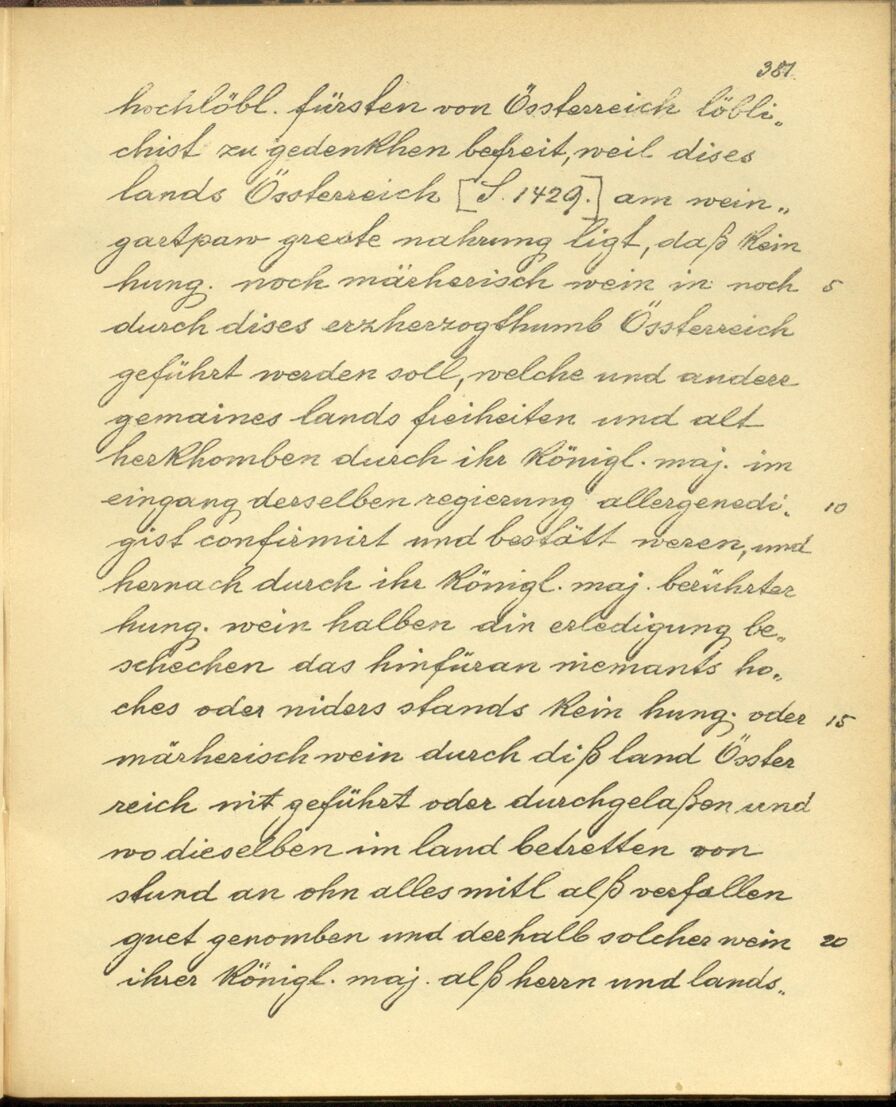 381.
hochlöbl. fürsten von Össterreich löbli„
chist zu gedenkhen befreit, weil dises
lands Össterreich [S. 1429.] am wein„
gartpaw greste nahrung ligt, daß kein
hung. noch märherisch wein in noch 5
durch dises erzherzogthumb Össterreich
geführt werden soll, welche und andere
gemaines lands freiheiten und alt
herkhomben durch ihr königl. maj. im
eingang derselben regierung allergenedi„ 10
gist confirmirt und bestätt weren, und
hernach durch ihr königl. maj. berührter
hung. wein halben ain erledigung be„
schechen das hinfüran niemants ho„
ches oder niders stands kein hung. oder 15
märherisch wein durch diß land Öster
reich nit geführt oder durchgelaßen und
wo dieselben im land betretten von
stund an ohn alles mitl alß verfallen
guet genomben und derhalb solcher wein 20
ihrer königl. maj. alß herrn und lands„